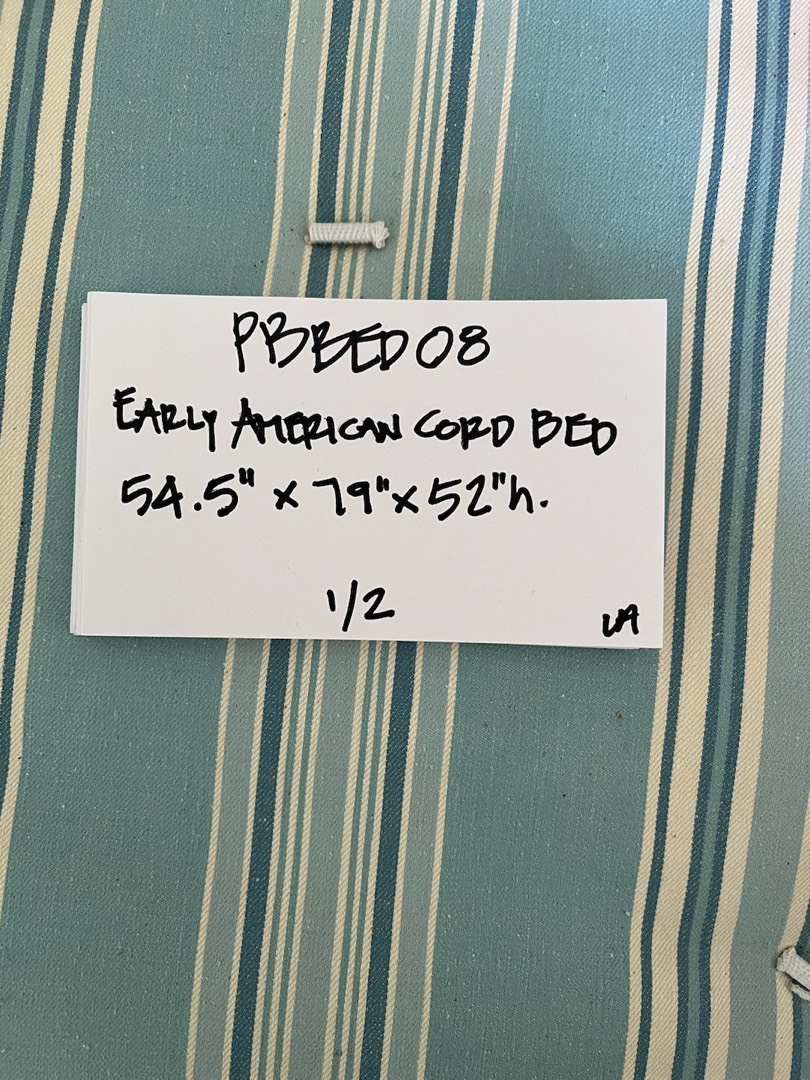 PBBED08
EARLY AMERICAN CORD BED
54.5" x 79" x 52"h.
1/2